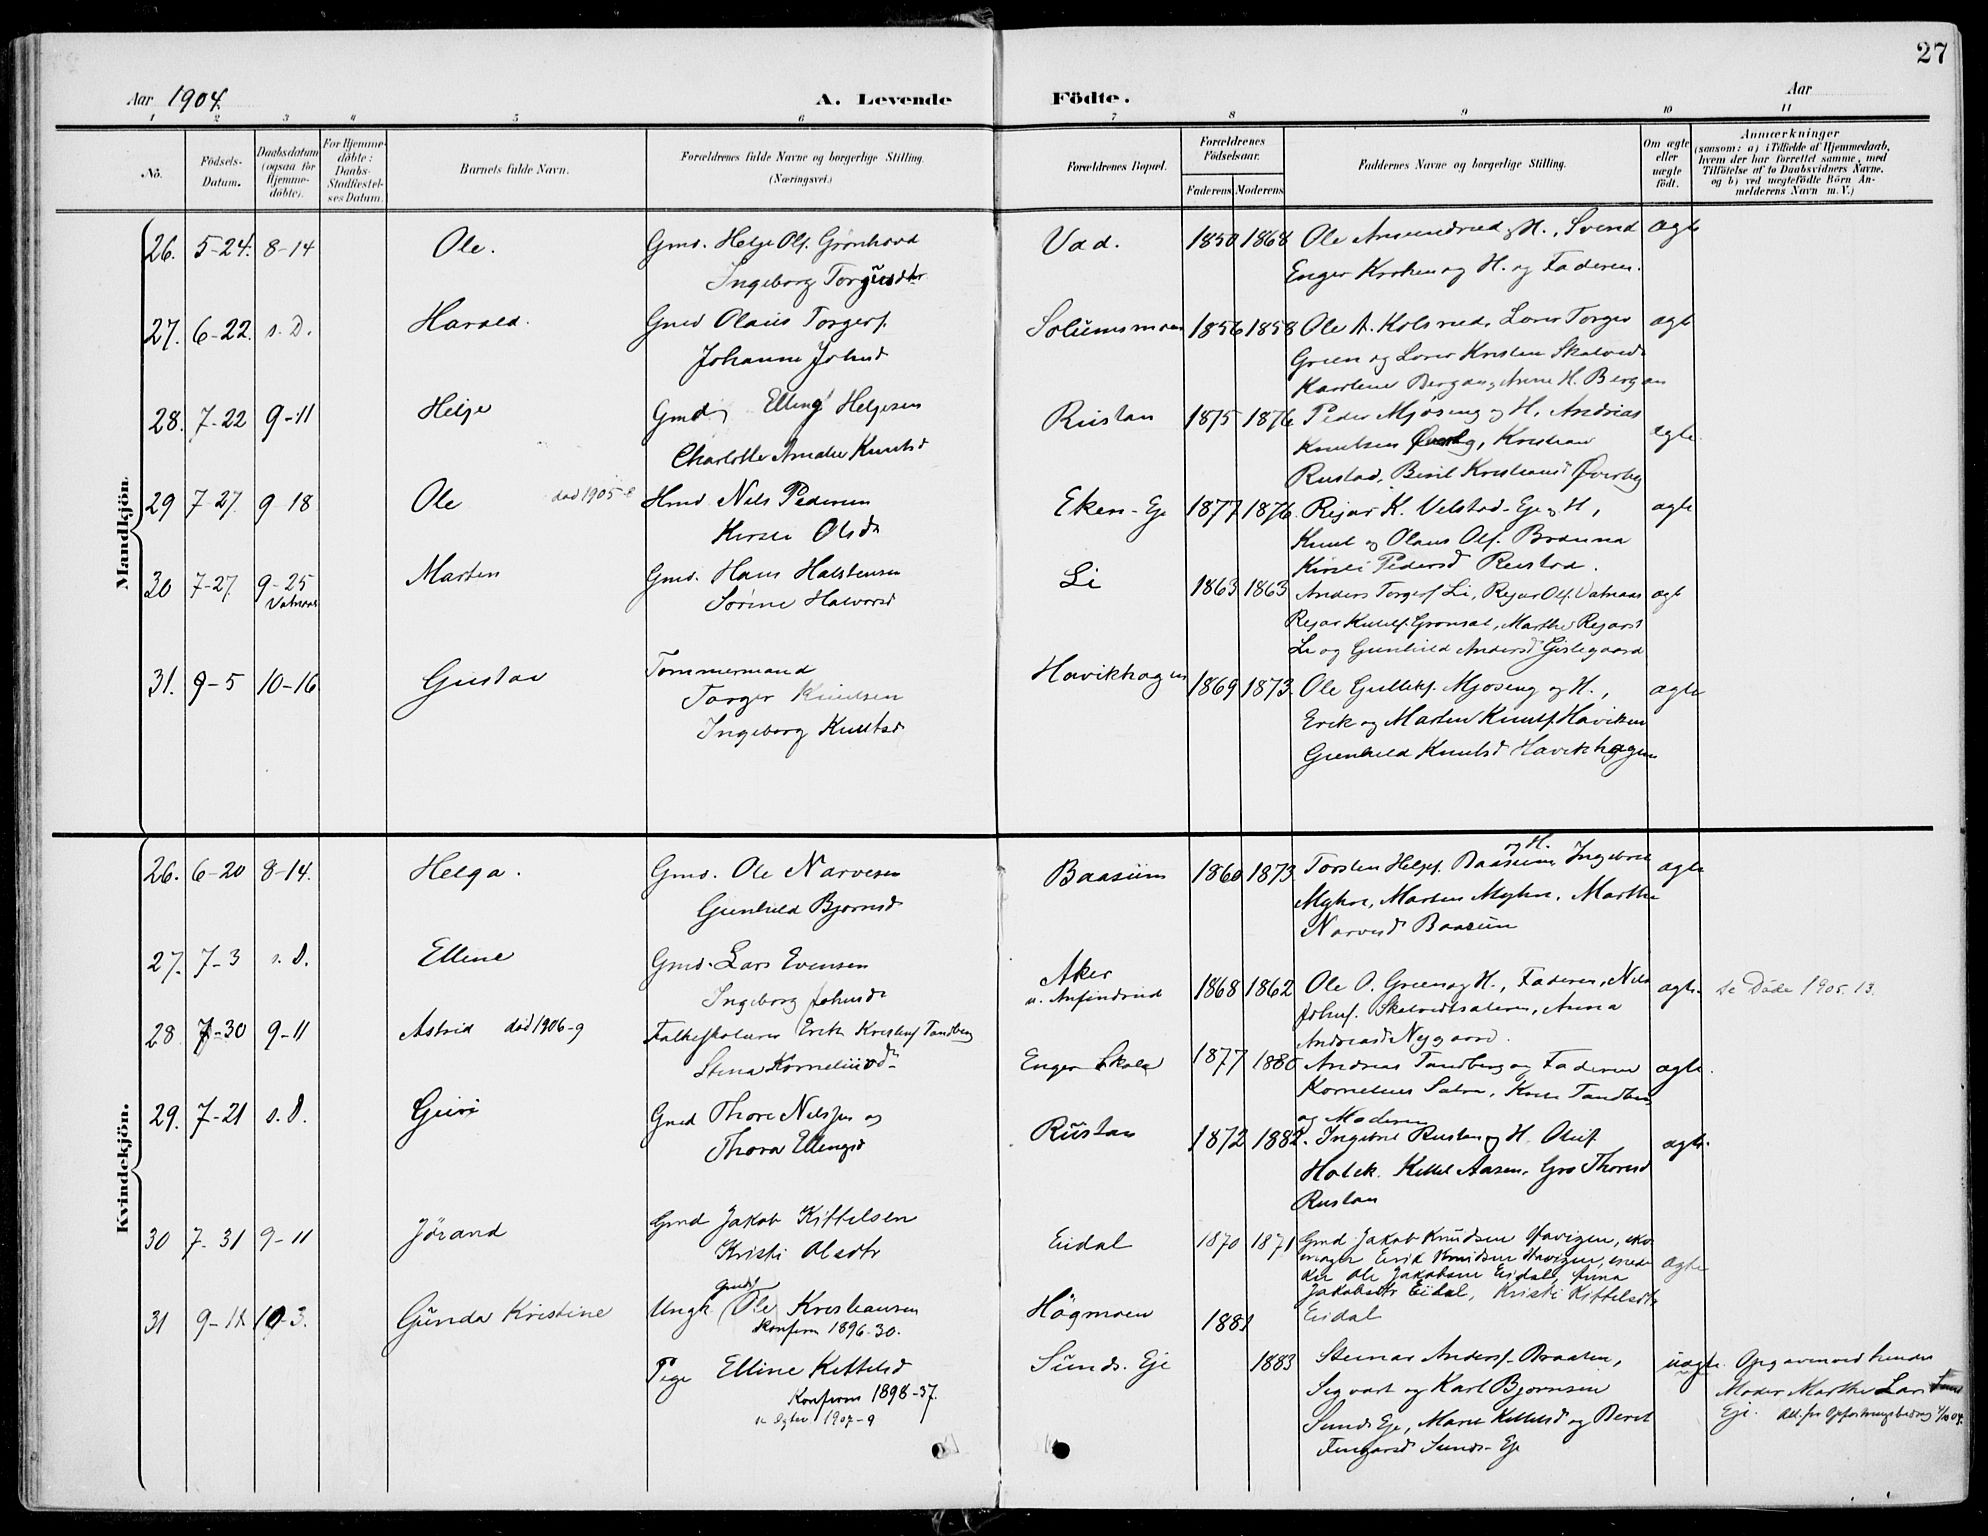 27
Aar 1904.
A. Levende Födte.
Aar
1 2 3 4 5 6 7 8 9 10 11
No.
Födsels-Datum.
Daabsdatum (ogsaa for Hjemmedöbte).
For Hjemmedöbte: Daabs-Stadfæstelses Datum.
Barnets fulde Navn.
Forældrenes fulde Navne og borgerlige Stilling.
(Næringsvei.)
Forældrenes Bopæl.
Forældrenes Födselsaar.
Faderens Moderens
Faddernes Navne og borgerlige Stilling.
Om ægte eller uægte födt.
Anmærkninger
(saasom: a) i Tilfælde af Hjemmedaab,
hvem der har forrettet samme, med
Tilföielse af to Daabsvidners Navne,
og b) ved uægtefödte Börn Anmelderens Navn m. V.)
Mandkjön.
26. 5-24. 8-14 Ole. Gmd. Helge Ols. Grønhovd Vad. 1850 1868 Ole Amundrud og H., Svend ægte
Ingeborg Torgusdtr Enger Kroken og H. og Faderen.
27. 6-22. s. D. Harald. Gmd Olaus Torgers. Solumsmoen 1856 1858 Ole A. Kolsrud, Lærer Torger ægte
Johanne Johnsd Green og Lærer Kristen Skalved
Karoline Bergan, Anne H. Bergan
28. 7-22 9-11 Helge Gmd Elling Helgesen Rustan 1875 1876 Peder Mjøseng og H, Andrias
Charlotte Amalie Knutsd Knutsen Øverby, Kristian ægte.
Rustad, Berit Kristiansd Øverby
29 7-27. 9-18 Ole død 1905-8 Hmd. Nils Pedersen Eken-Eje 1877 1876. Rejar K. Velstad-Eje og H, ægte
Kirsti Olsdr Knut og Olaus Ols. Braruna
Kirsti Pedersd Rustad.
30 7-27. 9-25 Marten Gmd. Hans Halstensen Li 1863 1863 Anders Torgers. Li, Rejar Ols. Vatnaas ægt
Vatnaas Sørine Halvorsd Rejar Knuts. Grønsal, Marthe Rejarsd
Li og Gunhild Andersd Gislegaard
31. 9-5 10-16 Gustav Tømmermand Havikhagen 1869 1873. Ole Gulliks. Mjøseng og H., ægte
Torger Knutsen Erik og Marten Knuts. Haviken
Ingeborg Knutsd Gunhild Knutsd Havikhagen
Kvindekjön.
26. 6-20 8-14. Helga. Gmd. Ole Narvesen Baasum 1860 1873 Torsten Helges. Baasum og H. Ingebret ægte
Gunhild Bjørnsd Myhre, Marten Myhre, Marthe
Narvesd Baasum
27. 7-3 s. D. Elline Gmd. Lars Evensen Aker 1868 1862 Ole O. Green og H., Faderen, Nils ægte. se Døde 1905. 13.
Ingeborg Johnsdr u. Anfindrud Johns. Skalvedtsateren, Anna
Andreasd Nygaard.
28 7-30 9-11 Astrid død 1906-9 Folkeskolærer Erik Kristens. Tandberg Enger Skole 1877 1880 Andreas Tandberg og Faderen ægte.
Stina Korneliusd Kornelius Salve, Kari Tandberg
og Moderen
29. 7-21 s. D. Guri Gmd Thore Nilssen og Rustan 1872 1882. Ingebret Rustan og H. Oluf ægte.
Thora Ellingsd Holck. Kittel Aasen, Gro Thoresd
Rustan
30 7-31 9-11 Jørand Gmd Jakob Kittelsen Eidal 1870 1871 Gmd. Jakob Knudsen Haviken, sko-
Kristi Olsdtr mager Erik Knudsen Haviken, sned-
ker Ole Jakobsen Eidal, Anna ægte
Jakobsdtr Eidal, Kristi Kittelsdtr
Eidal
31 9-11 10-3. Gunda Kristine Ungk. Gmds. Ole Kristiansen Høgmoen 1881
Konfirm 1896-30.
Pige Elline Kittelsd Sunds. Eje 1883 Steinar Anders. Braaten, uægte. Opgaven ved hendes
Konfirm 1898-37. Sigvart og Karl Bjørnsen Moder Marthe Lars Sund
1907-9 Sunds Eje, Marit Kittelsd og Beret Eje. Att. for Opfostringsbidrag
Fingarsd Sunds-Eje